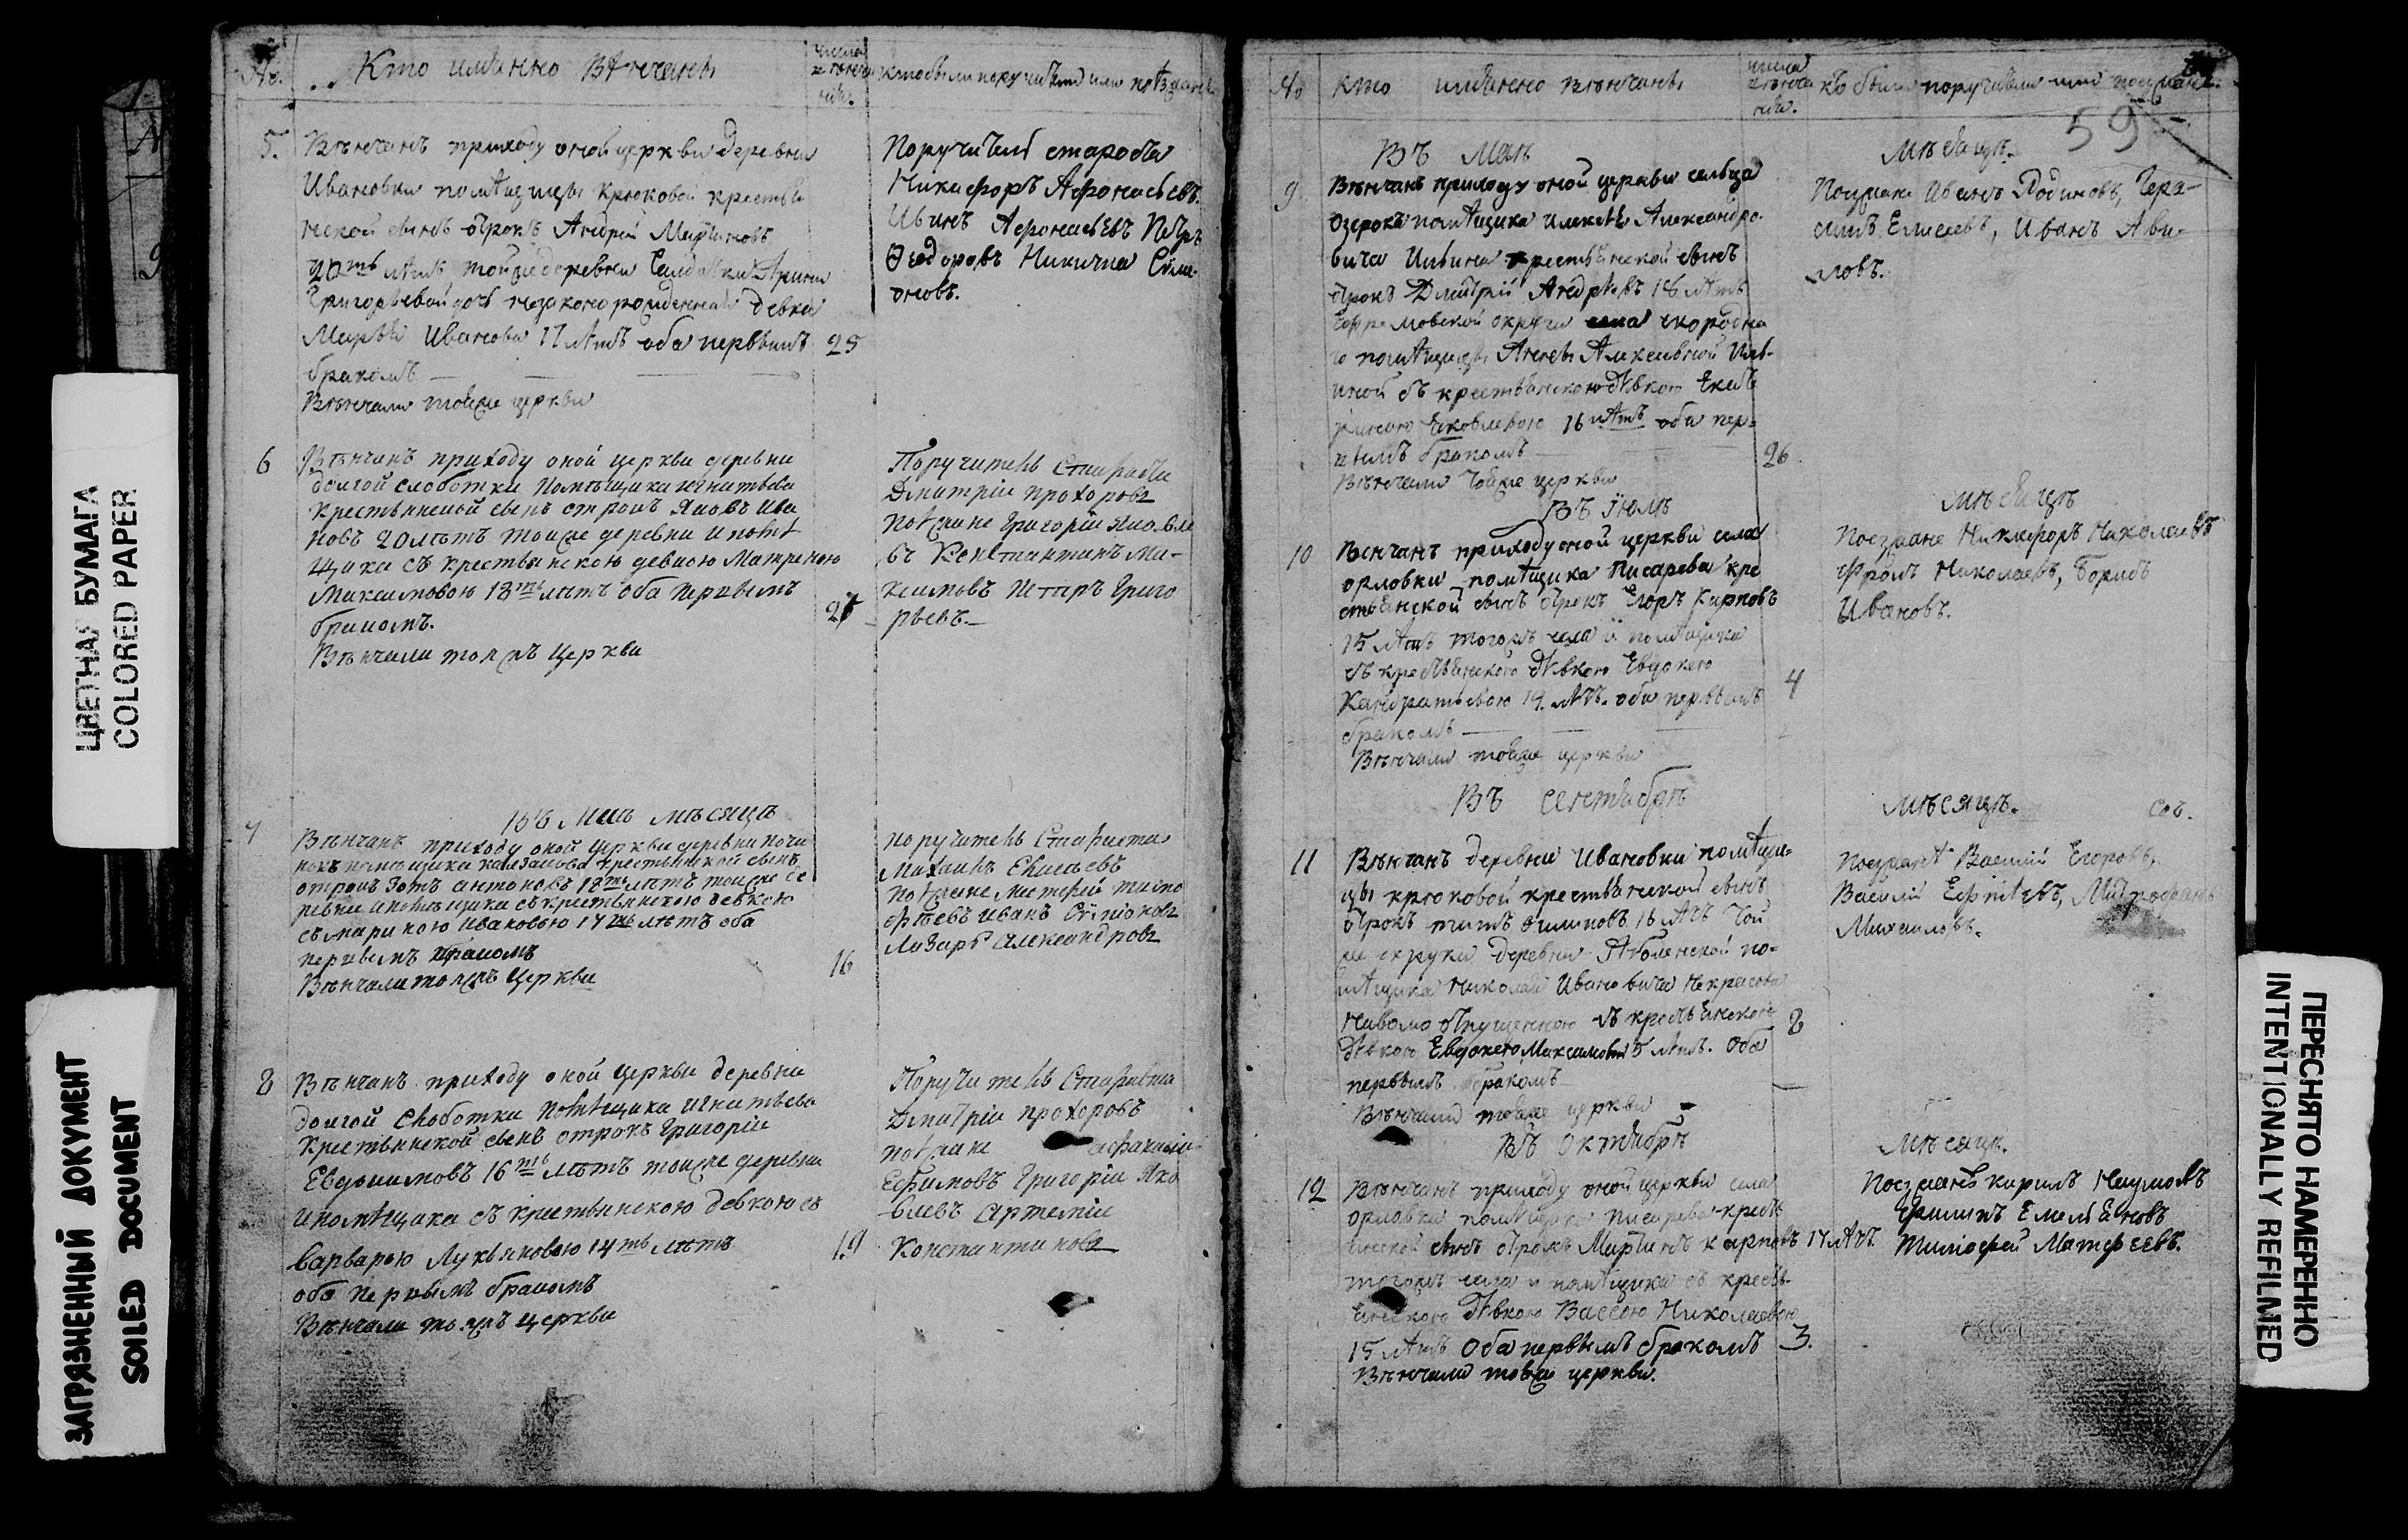 ЦВЕТНАЯ БУМАГА
COLORED PAPER
ЗАГРЯЗНЕННЫЙ ДОКУМЕНТ
SOILED DOCUMENT
№. Кто имянно вѣнчаны
числа вѣнчания. кто были поручители или поѣзжане
5. Вѣнчанъ приходу оной церкви деревни
Ивановки помѣщицы крюковой крестья
нской сынъ отрокъ Андрей Мартиновъ
20ть лѣтъ тойже деревни Салдатки Арины
Григорьевой дочь незаконорожденная девка
Марья Иванова 17 лѣтъ оба первымъ 25
бракомъ
Вѣнчали тойже церкви
Поручители староста
Никифоръ Афонасьевъ.
Иванъ Афонасьевъ Петръ
Ѳеодоровъ Никита Сѵмі-
оновъ.
6 Вѣнчанъ приходу оной церкви деревни
долгой слоботки помѣщика игнатьева
крестьянской сынъ отрокъ Яковъ Ива
новъ 20 лѣтъ тойже деревни и помѣ
щика съ крестьянскою девкою Матреною
Максимовою 18ть лѣтъ оба первымъ
бракомъ.
Вѣнчали тояжъ церкви
Поручитель Староста
Дмитріи прохоровъ
поѣзжане Григоріи Яковле
въ Констинтинъ Ма-
ксимовъ Петръ Григо
рьевъ.
Въ Маѣ мѣсяцѣ
7 Вѣнчанъ приходу оной церкви деревни почи
нокъ помещика крестьянской сынъ
отрокъ Зотъ антоновъ 18ть лѣтъ тойже де
ревни и помещика съ крестьянскою девкою
съ мариною Ивановою 17ть лѣтъ оба
первымъ бракомъ 16
Вѣнчали тояжъ Церкви
поручитель Староста
Михаилъ Елисеевъ
поѣзжане Матфей тимо
фѣевъ Иванъ Сѵміоновъ
Лазарь Александровъ
8 Вѣнчанъ приходу оной Церкви деревни
долгой Слоботки помѣщика игнатьева
Крестьянской сынъ отрокъ Григоріи
Евдокимовъ 16ть лѣтъ тойже деревни
и помѣщика съ крестьянскою девкою съ
варварою Лукьяновою 14ть лѣтъ 19
оба первымъ бракомъ
Вѣнчали тояжъ церкви
Поручитель Староста
Дмитріи прохоровъ
поѣзжане афанасіи
Ефимовъ Григоріи Яко
влевъ Артемій
Константиновъ
№ кто имянно вѣнчаны
числа вѣнчания. кто были поручители или поезжане.
59
Въ Маѣ Мѣсяцѣ.
9 Вѣнчанъ приходу оной церкви сельца
Озерокъ помѣщика Алексѣя Александро-
вича Ильина крестьянской сынъ
отрокъ Дмитрій Андрѣевъ 18 лѣтъ
Ефремовской округи села скородна
го помѣщицы Анны Алексѣевной Иль-
иной съ крестьянскою дѣвкою Екате
риною Яковлевою 16 лѣтъ оба пер-
вымъ бракомъ 26.
Вѣнчали тойже церкви
Поезжане Иванъ Родионовъ, Гера-
симъ Елисеевъ, Иванъ Ави-
ловъ.
Въ Іюлѣ мѣсяцѣ
10 Венчанъ приходу оной церкви села
орловки помѣщика Писарева кре
стьянской сынъ отрокъ Егоръ Карповъ
15 лѣтъ тогожъ села и помѣщика
съ крестьянскою дѣвкою Евдокею
Кандратьевою 19. лѣтъ. оба первымъ 4
бракомъ
Вѣнчали тойже церкви
Поезжане Никифоръ Николаевъ
Фролъ Николаевъ, Борисъ
Ивановъ.
Въ сентябрѣ мѣсяцѣ.
11 Вѣнчанъ деревни Ивановки помѣщи-
цы крюковой крестьянской сынъ
отрокъ титъ филиповъ 16 лѣтъ той
же округи деревни помѣщика Николая Ивановича Некрасова
отпущенною съ крестьянскою 8
дѣвкою Евдокею Максимовой 15 лѣтъ. Оба
первымъ бракомъ
Вѣнчали тойже церкви
Поезжанѣ Василій Егоровъ,
Василій Ефимѣевъ, Митрофанъ
Михаиловъ.
Въ Октябрѣ Мѣсяцѣ.
12 Вѣнчанъ приходу оной церкви села
орловки помѣщика писарева кресть
янской сынъ отрокъ Мартинъ карповъ 17 лѣтъ.
тогожъ села и помѣщика съ кресть-
янскою дѣвкою Вассою Николаевою
15 лѣтъ Оба первымъ бракомъ 3.
Вѣнчали тойже церкви.
Поезжанѣ кирилъ Наумовъ
Филипъ Емельяновъ
Тимофей Матфеевъ.
ПЕРЕСНЯТО НАМЕРЕННО
INTENTIONALLY REFILMED